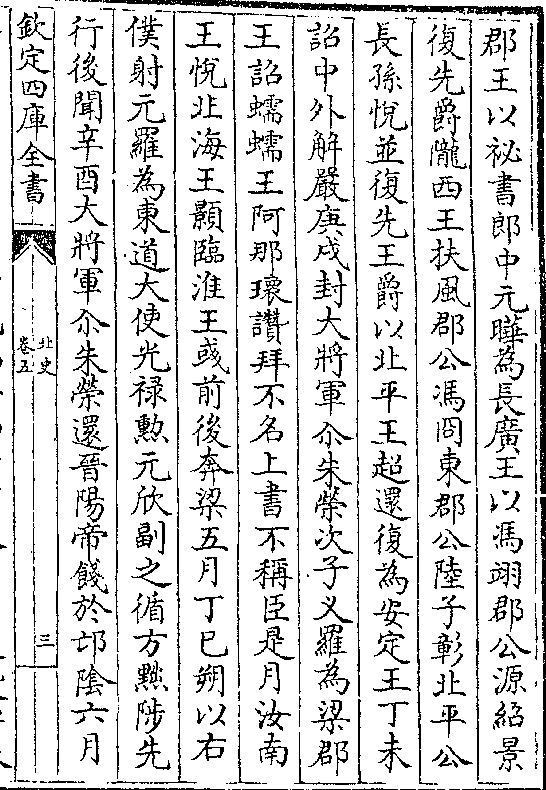 郡王以祕書郎中元曄為長廣王以馮翊郡公源紹景
復先爵隴西王扶風郡公馮冏東郡公陸子彰北平公
長孫悅並復先王爵以北平王超還復為安定王丁未
詔中外解嚴庚戌封大將軍尒朱榮次子义羅為梁郡
王詔蠕蠕王阿那瓌讚拜不名上書不稱臣是月汝南
王悅北海王顥臨淮王彧前後奔梁五月丁巳朔以右
僕射元羅為東道大使光祿勲元欣副之循方黜陟先
行後聞辛酉大將軍尒朱榮還晉陽帝餞於邙隂六月
欽定四庫全書
北史
卷五
三